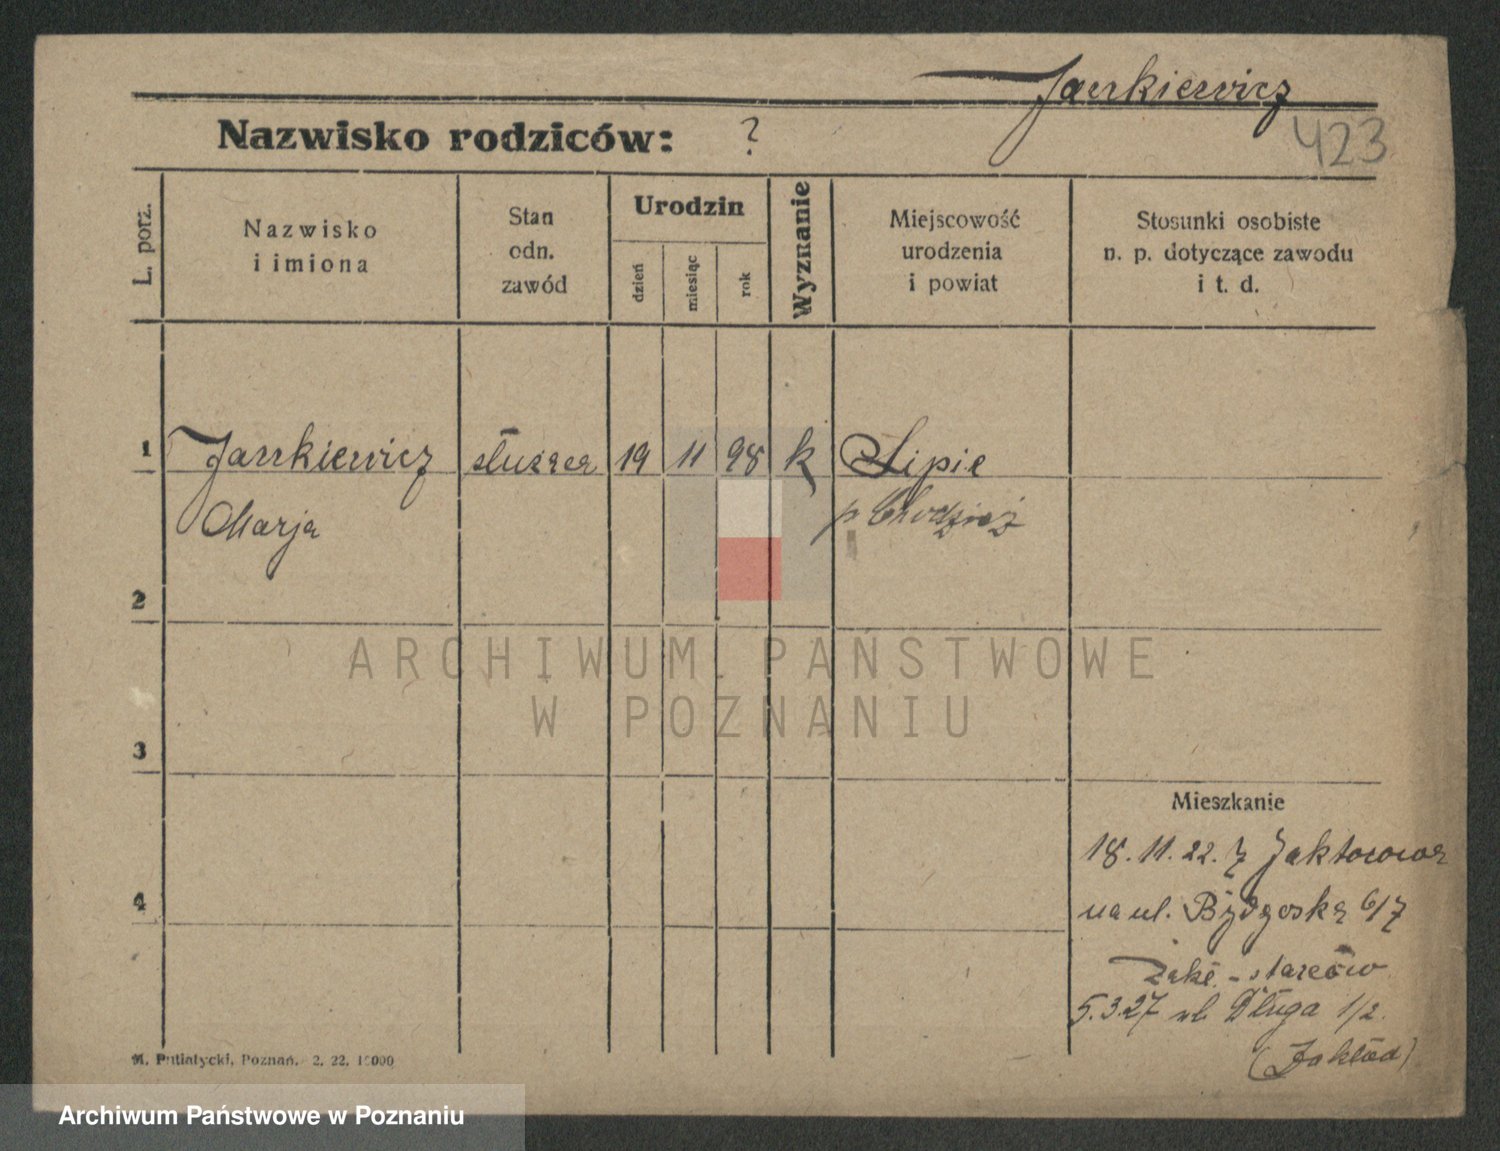 Jankiewicz
423
Nazwisko rodziców: ?
L. porz.
Nazwisko
i imiona
Stan
odn.
zawód
Urodzin
dzień
miesiąc
rok
Wyznanie
Miejscowość
urodzenia
i powiat
Stosunki osobiste
n. p. dotyczące zawodu
i t. d.
1 Jankiewicz służąca 19 11 98 k Lipie
Marja p Chodzież
2
ARCHIWUM PAŃSTWOWE
W POZNANIU
3
Mieszkanie
18.11.22. z Jaktorowa
4
na ul. Bydgoską 6/7
Zakł. - starców
5.3.27 ul. Długa 1/2.
(Zakład)
M. Putiatycki, Poznań. 2. 22. 10000
Archiwum Państwowe w Poznaniu